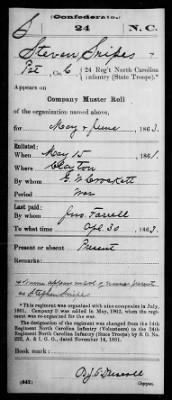 S (Confederate.)
24 N.C.
Steven Snipes
Pvt, Co. C, 24 Reg't North Carolina
Infantry (State Troops).*
Appears on
Company Muster Roll
of the organization named above,
for May & June, 1863.
Enlisted:
When May 15, 1861.
Where Clayton
By whom
Period War
Last paid:
By whom Jno. Farrell
To what time Apl 30, 1863.
Present or absent Present
Remarks:
as Stephen Snipes
*This regiment was organized with nine companies in July,
1861. Company I was added in May, 1862, when the regi-
ment was re-organized for the war.
The designation of the regiment was changed from the 14th
Regiment North Carolina Infantry (Volunteers) to the 24th
Regiment North Carolina Infantry (State Troops) by S. O. No.
222, A. & I. G. O., dated November 14, 1861.
Book mark:
(642)
Copyist.